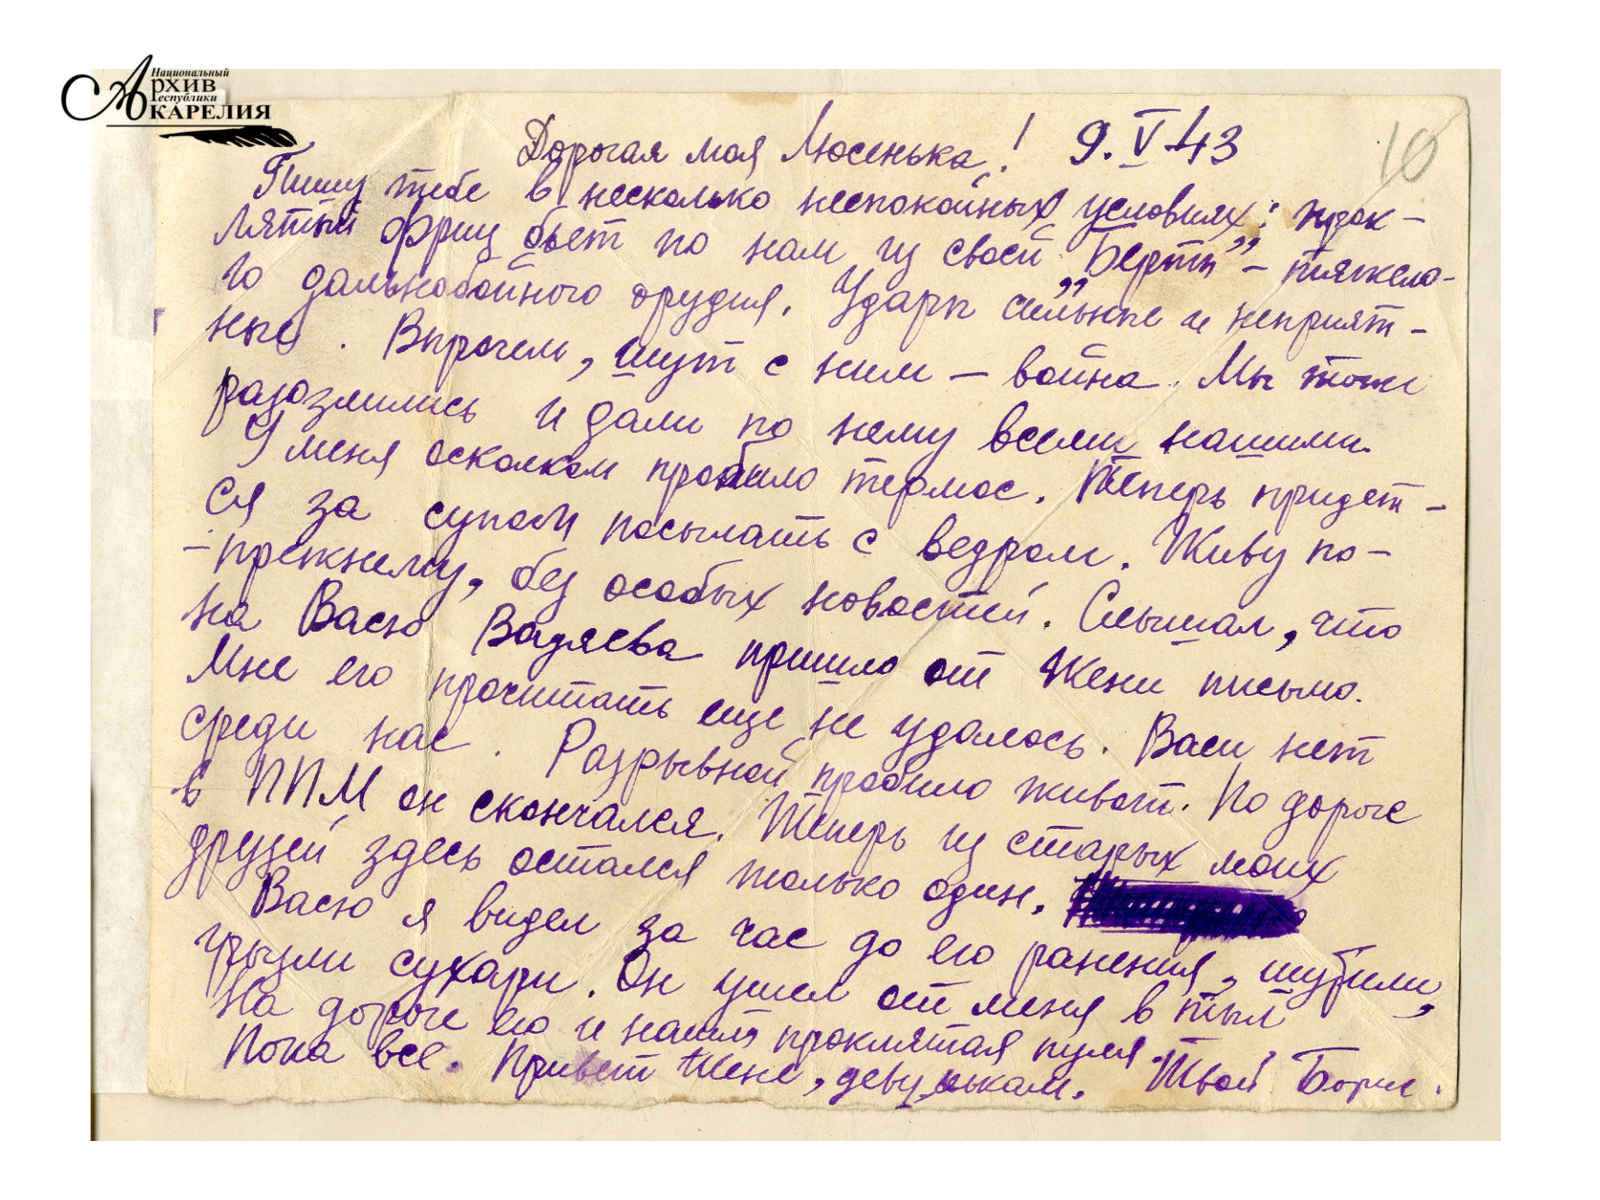 Национальный
Архив
Республики
Карелия
10
Дорогая моя Люсенька! 9.V.43
Пишу тебе в несколько неспокойных условиях: прок-
лятый фриц бьет по нам из своей „Берты” – тяжело-
го дальнобойного орудия. Удары сильные и неприят-
ные. Впрочем, шут с ним – война. Мы тоже
разозлились и дали по нему всеми нашими.
У меня осколком пробило термос. Теперь придет-
ся за супом посылать с ведром. Живу по-
-прежнему, без особых новостей. Слышал, что
на Васю Вадяева пришло от Жени письмо.
Мне его прочитать еще не удалось. Васи нет
среди нас. Разрывной пробило живот. По дороге
в ППМ он скончался. Теперь из старых моих
друзей здесь остался только один.
Васю я видел за час до его ранения, шутили,
грызли сухари. Он ушел от меня в тыл
На дороге его и нашла проклятая пуля.
Пока все. Привет Жене, девушкам. Твой Борис.